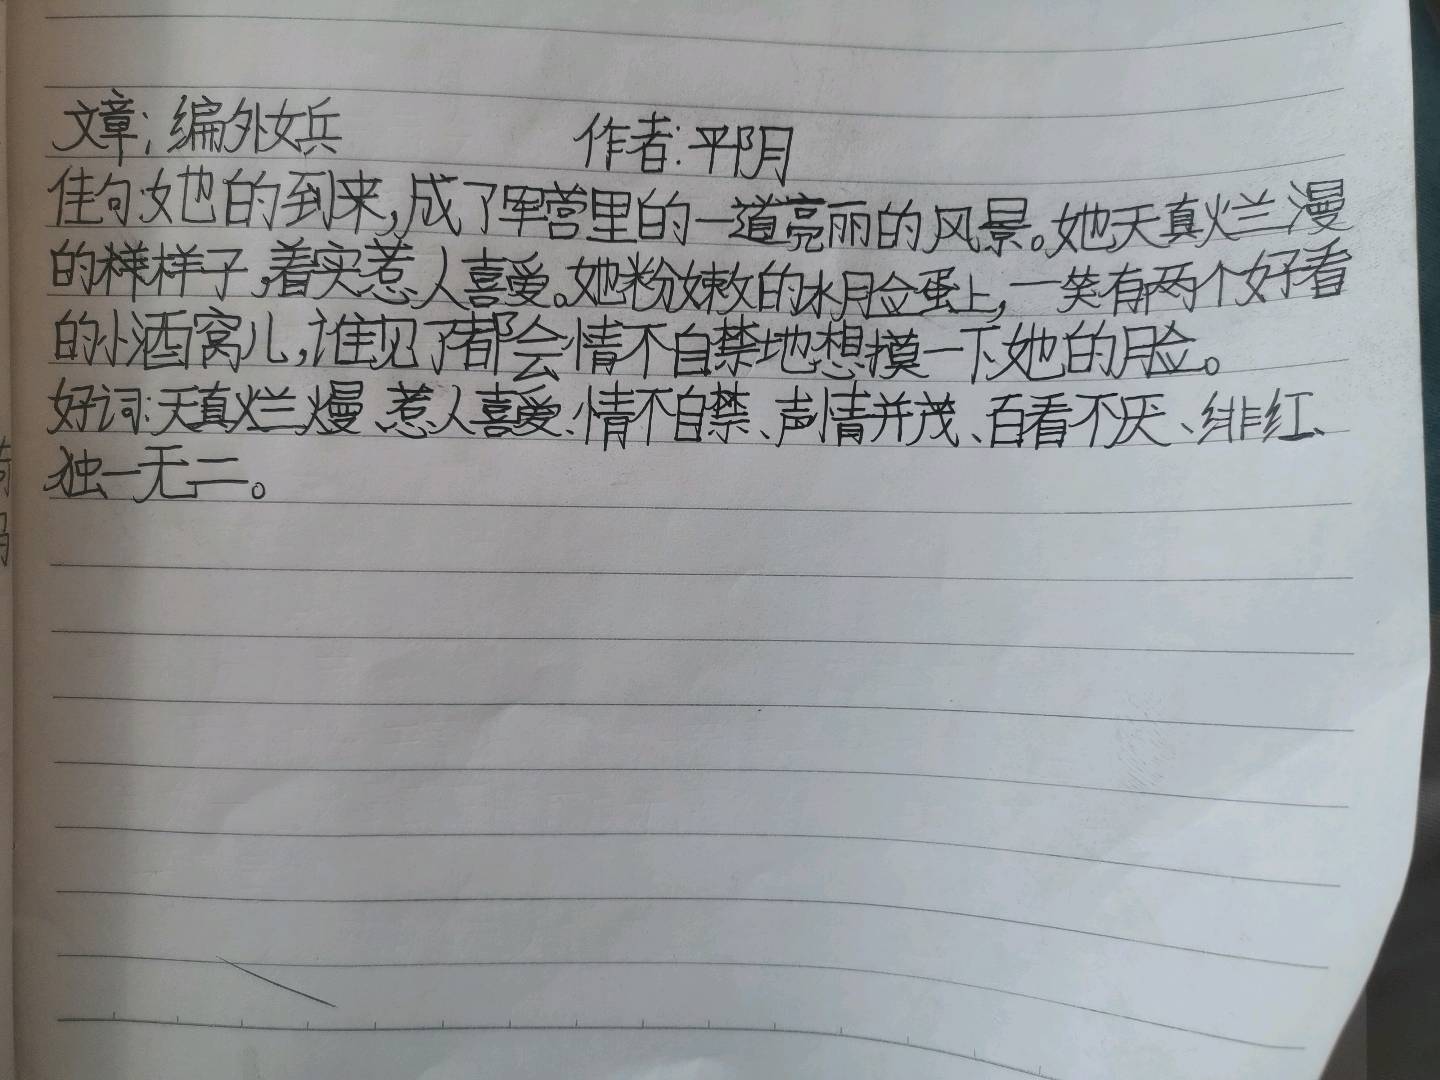 文章：编外女兵 作者：平阴月
佳句：她的到来，成了军营里的一道亮丽的风景。她天真烂漫
的样样子，着实惹人喜爱。她粉嫩的水脸蛋上，一笑有两个好看
的小酒窝儿，谁见了都会情不自禁地想摸一下她的脸。
好词：天真烂漫、惹人喜爱、情不自禁、声情并茂、百看不厌、绯红、
独一无二。